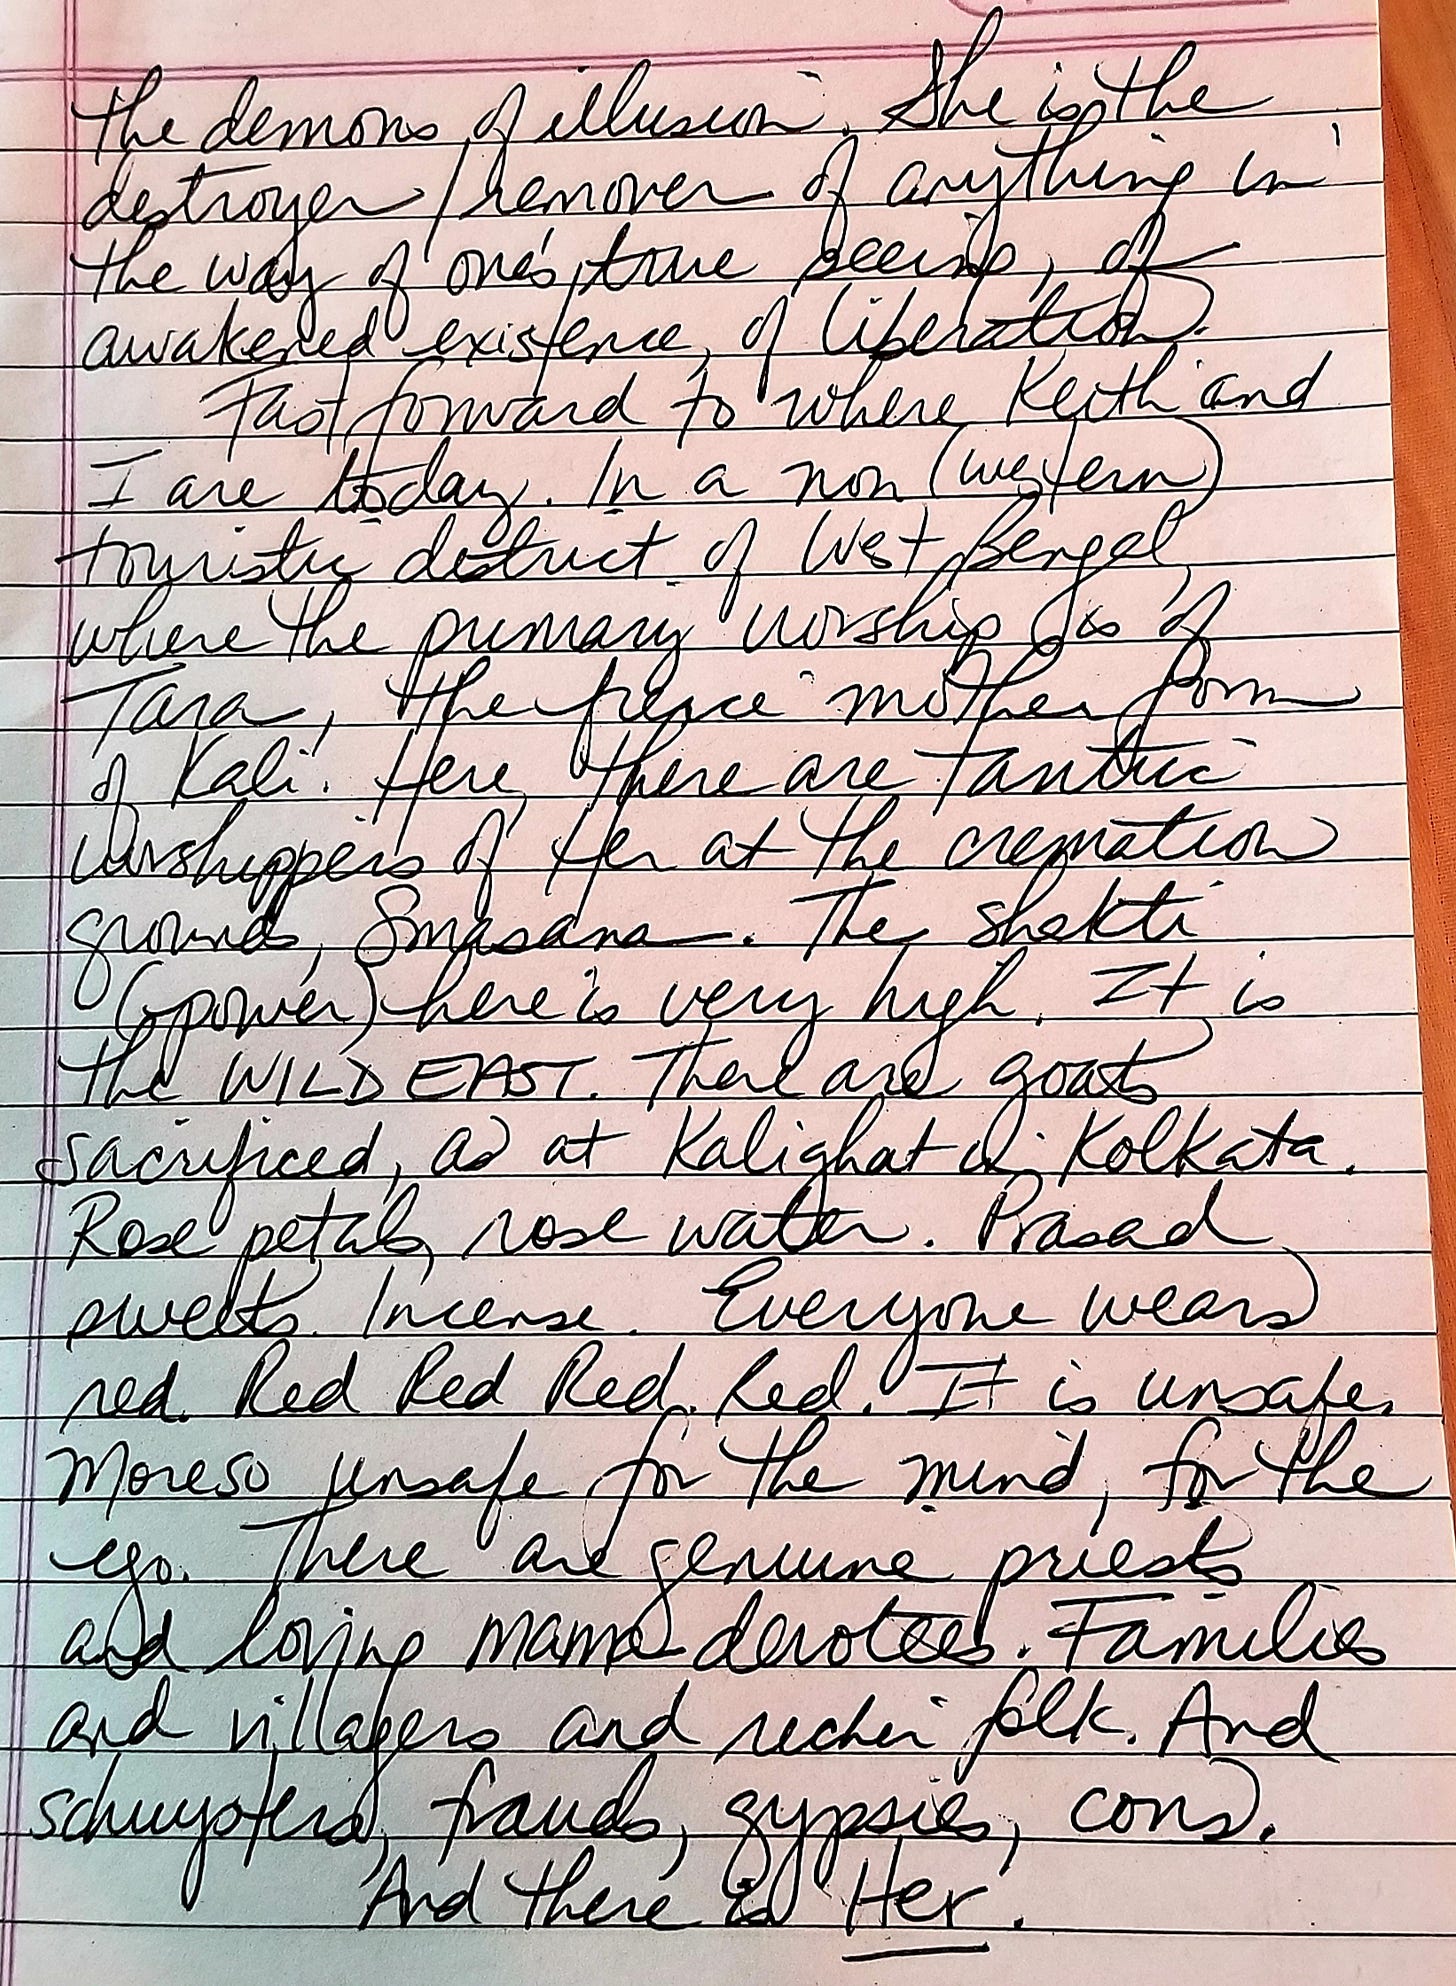 the demons of illusion. She is the
destroyer/remover of anything in
the way of one's true seeing, of
awakened existence, of liberation.
Fast forward to where Keith and
I are today. In a non (western)
touristic district of West Bengal,
where the primary worship is of
Tara, the fierce mother form
of Kali. Here, there are tantric
worshippers of Her at the cremation
grounds, Smasana. The shakti
(power) here is very high. It is
the WILD EAST. There are goats
sacrificed, as at Kalighat in Kolkata.
Rose petals, rose water. Prasad
sweets. Incense. Everyone wears
red. Red Red Red. Red. It is unsafe.
Moreso unsafe for the mind, for the
ego. There are genuine priests
and loving mama devotees. Families
and villagers and richer folk. And
schuysters, frauds, gypsies, cons.
And there is Her.